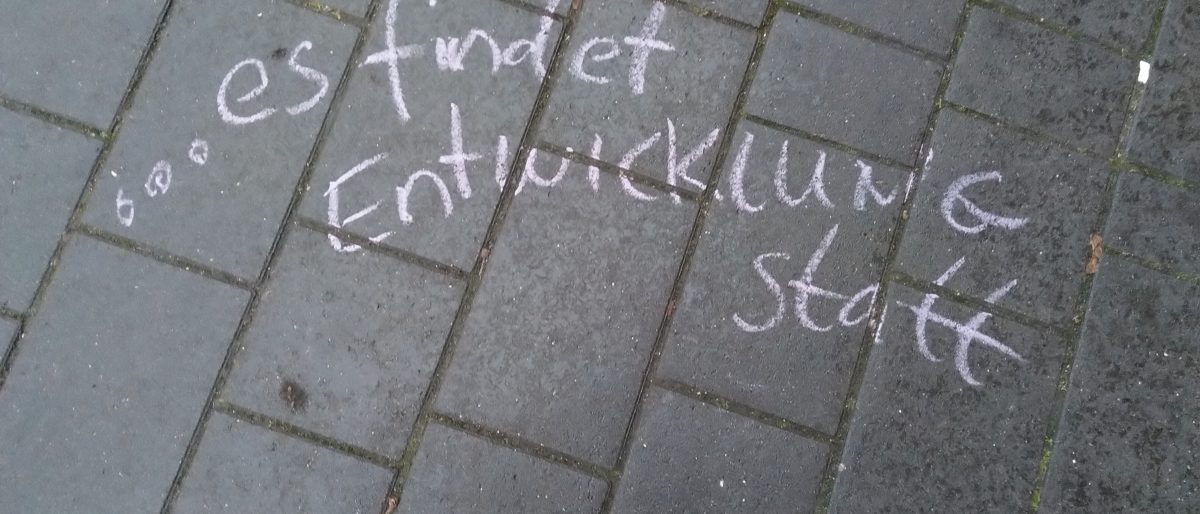 ... es findet
Entwicklung
statt